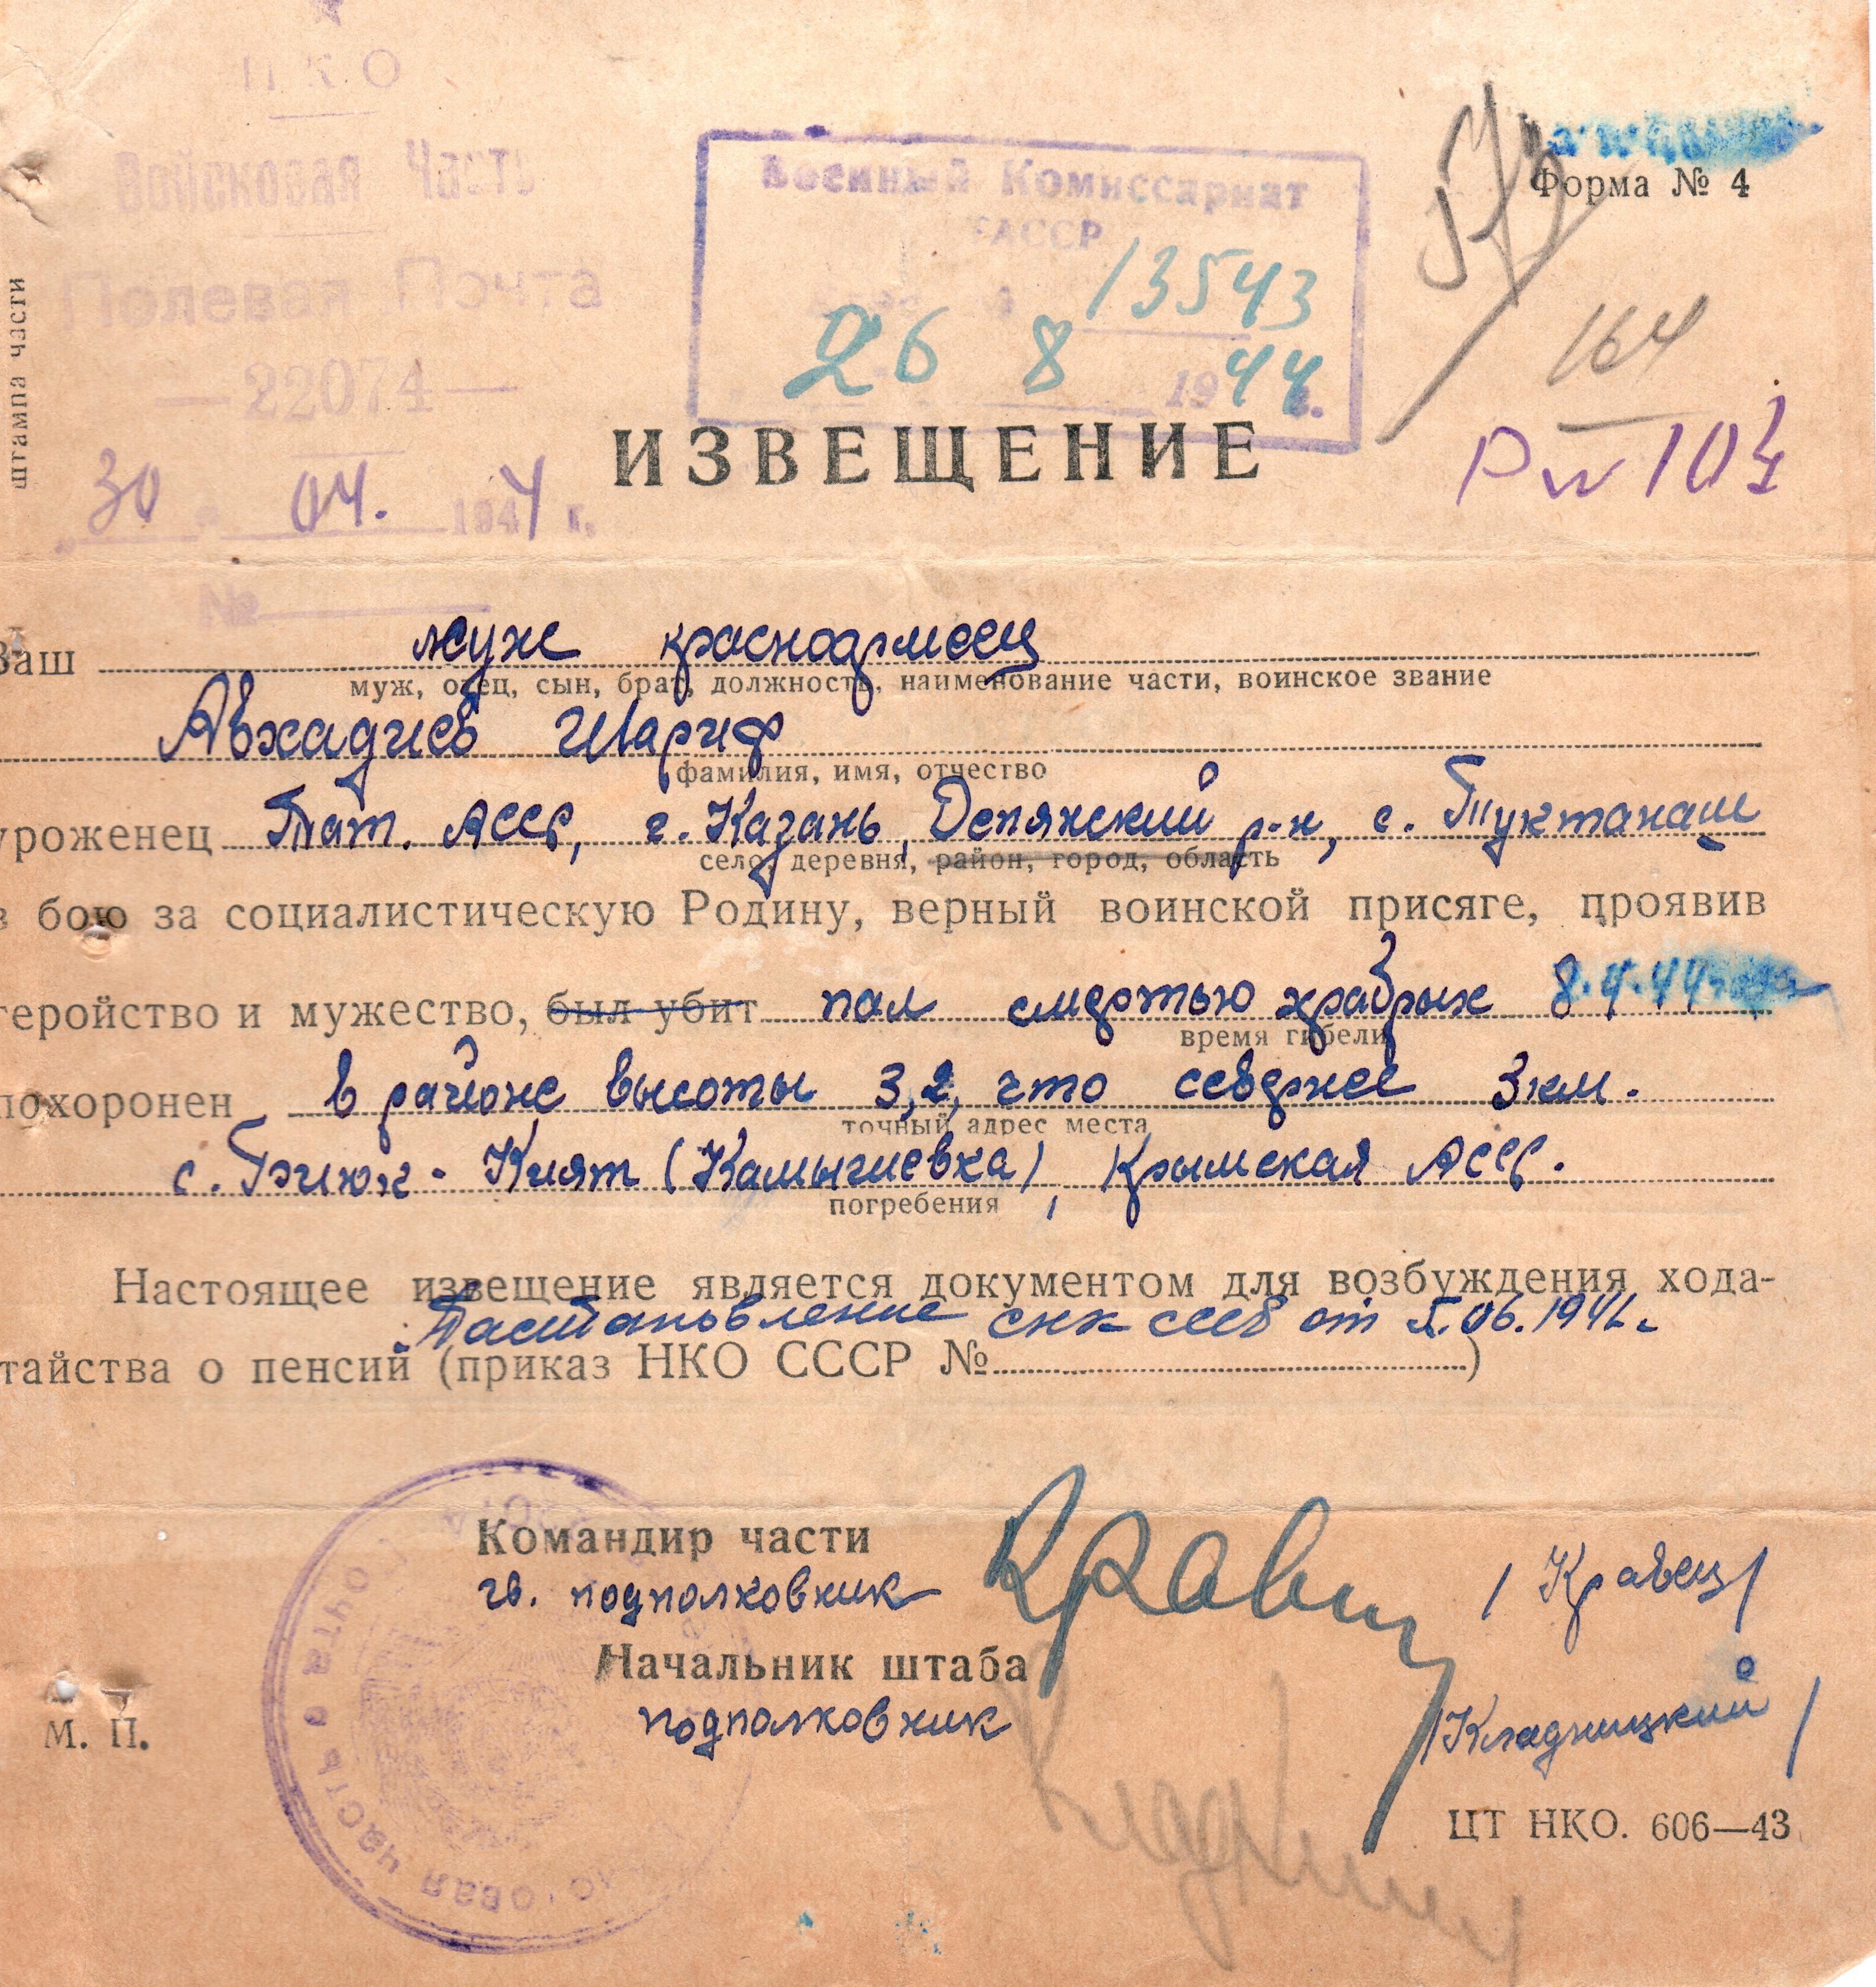 НКО
Войсковая Часть
Полевая Почта
—22074—
30 04. 1944 г.
№
штампа части
Военный Комиссариат
ТАССР
13543
26 8 1944 г.
Форма № 4
164
ИЗВЕЩЕНИЕ
Ваш муж красноармеец
муж, отец, сын, брат, должность, наименование части, воинское звание
Авхадиев Шариф
фамилия, имя, отчество
уроженец Тат. АССР, г. Казань, Депянский р-н, с. Туктанаш
село, деревня, район, город, область
в бою за социалистическую Родину, верный воинской присяге, проявив
геройство и мужество, был убит пал смертью храбрых 8.4.44 года
время гибели
похоронен в районе высоты 3,2, что севернее 3 км.
точный адрес места
с. Кият (Камышевка), Крымская АССР.
погребения
Настоящее извещение является документом для возбуждения хода-
Пастановление снк ссср от 5.06.1941.
тайства о пенсии (приказ НКО СССР № )
Командир части
гв. подполковник / Кравец /
Начальник штаба
подполковник / Кладницкий /
М. П.
ЦТ НКО. 606—43